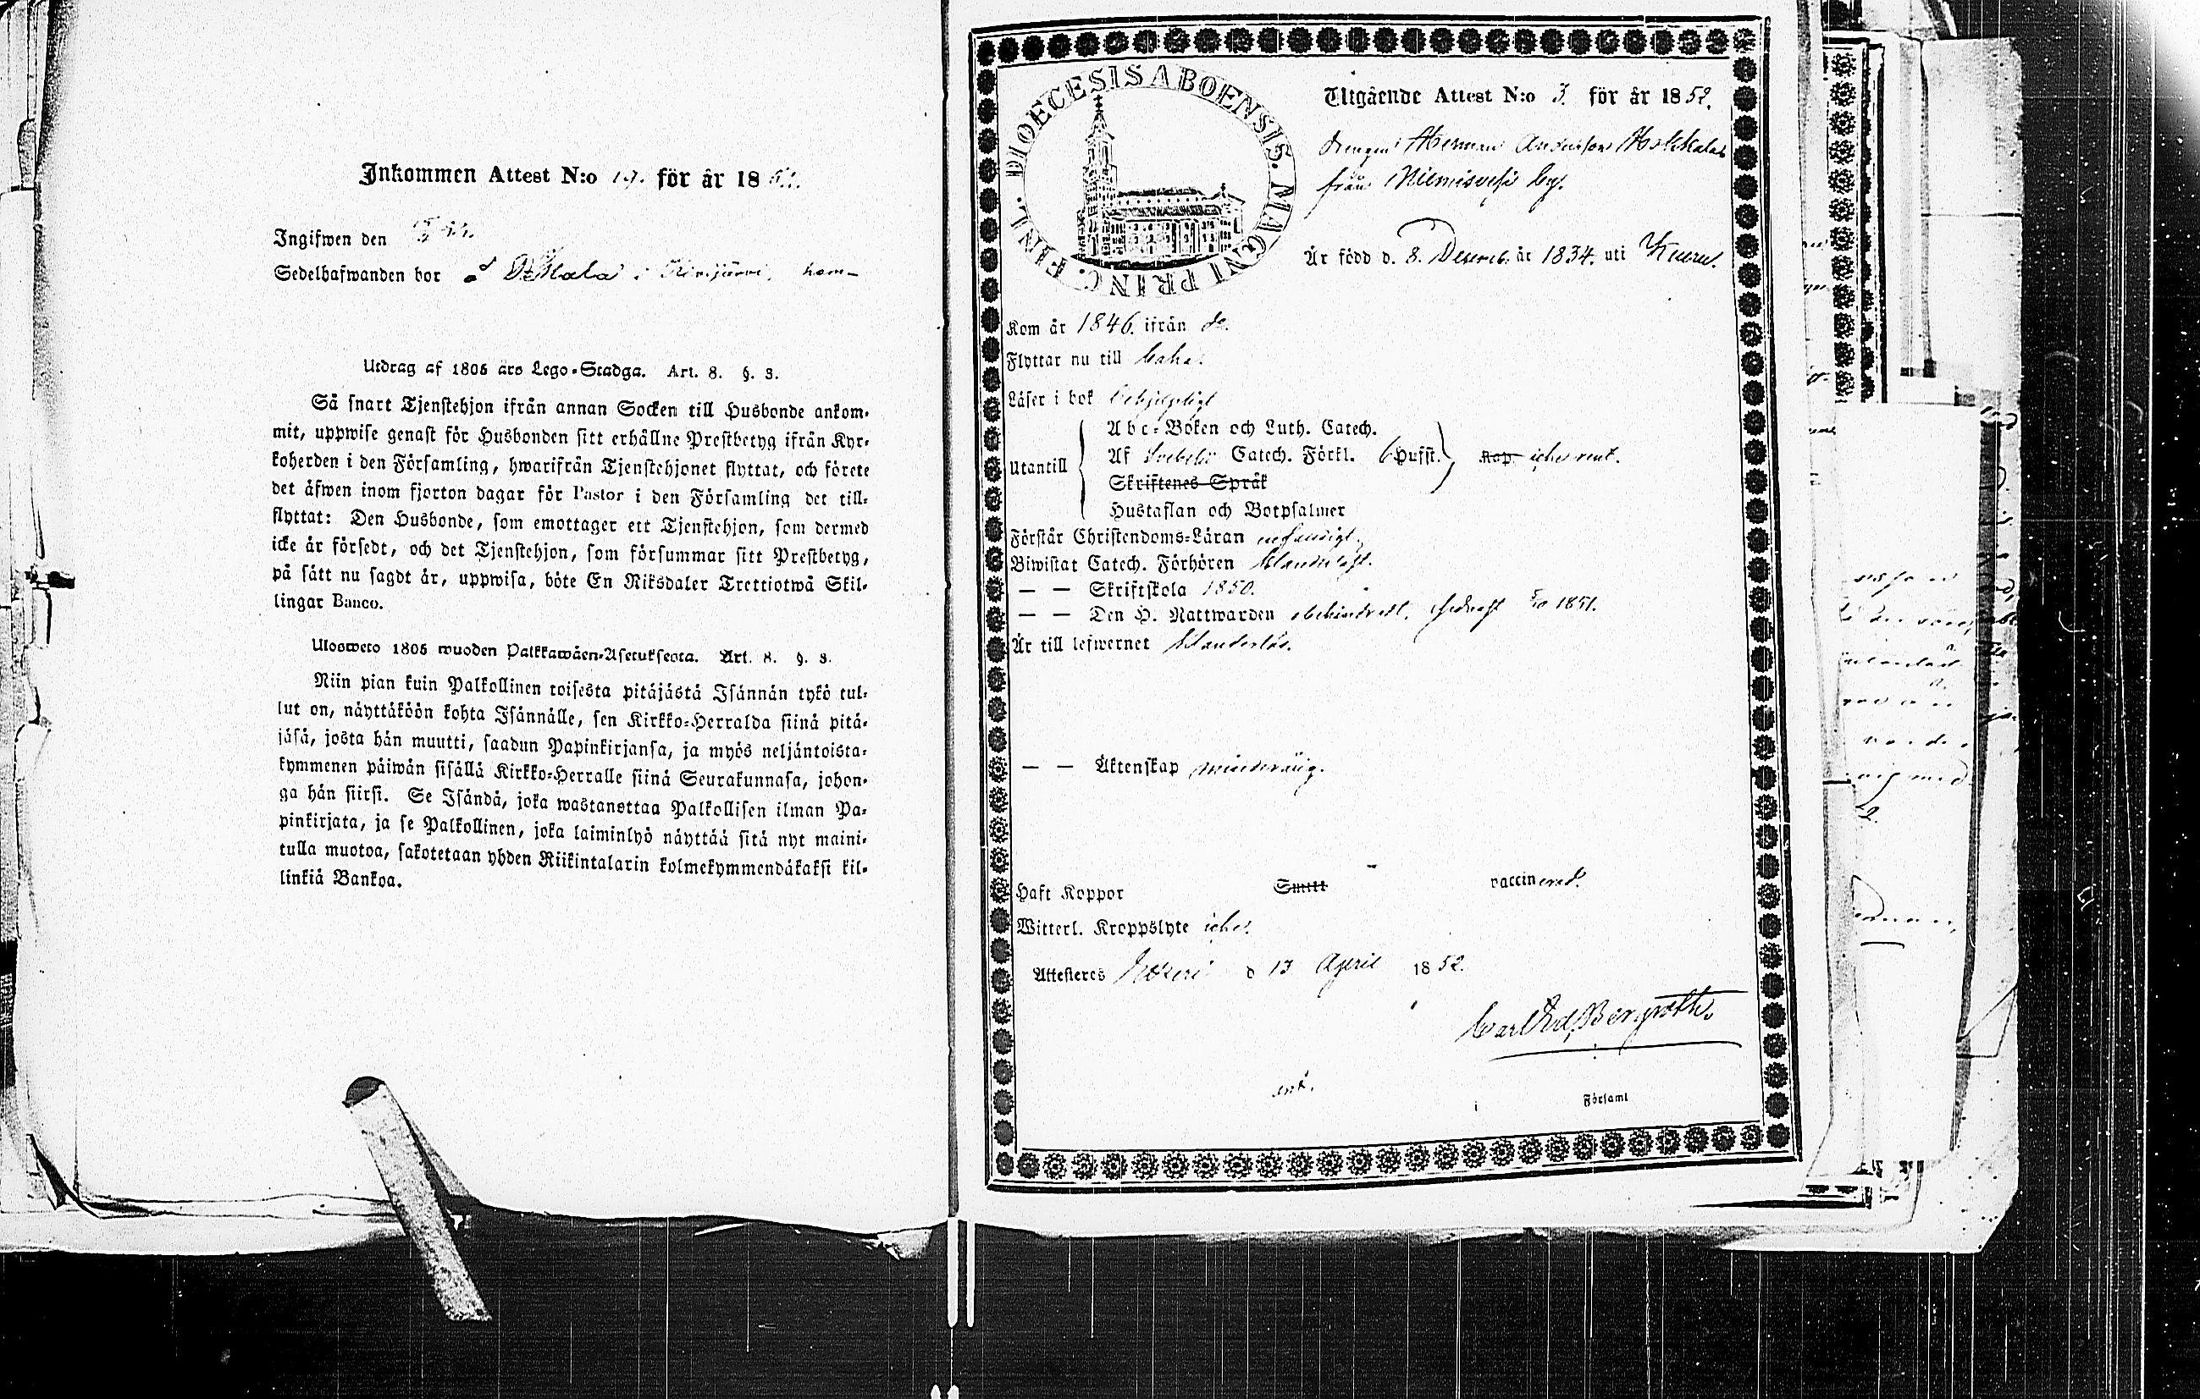 Inkommen Attest N:o 19. för år 1852.
Ingifwen den
Sedelhafwanden bor å i
Utdrag af 1805 års Lego-Stadga. Art. 8. §. 3.
Så snart Tjenstehjon ifrån annan Socken till Husbonde ankom-
mit, uppwise genast för Husbonden sitt erhållne Prestbetyg ifrån Kyr-
koherden i den Församling, hwarifrån Tjenstehjonet flyttat, och förete
det äfwen inom fjorton dagar för Pastor i den Församling det till-
flyttat: Den Husbonde, som emottager ett Tjenstehjon, som dermed
icke är försedt, och det Tjenstehjon, som försummar sitt Prestbetyg,
på sätt nu sagdt är, uppwisa, böte En Riksdaler Trettiotwå Skil-
lingar Banco.
Ulosweto 1805 wuoden Palkkawäen-Asetuksesta. Art. 8. §. 3.
Niin pian kuin Palkollinen toisesta pitäjästä Isännän tykö tul-
lut on, näyttäköön kohta Isännälle, sen Kirkko-Herralda siinä pitä-
jäsä, josta hän muutti, saadun Papinkirjansa, ja myös neljäntoista-
kymmenen päiwän sisällä Kirkko-Herralle siinä Seurakunnasa, johon-
ga hän siirsi. Se Isändä, joka wastanottaa Palkollisen ilman Pa-
pinkirjata, ja se Palkollinen, joka laiminlyö näyttää sitä nyt maini-
tulla muotoa, sakotetaan yhden Riikintalarin kolmekymmendäkaksi kil-
linkiä Bankoa.
FINL. DIOECESIS ABOENSIS. MAGNI PRINC.
Utgående Attest N:o 3. för år 1852.
Drengen Herman Andersson
från Niemisvesi by.
Är född d. 8. Decemb. år 1834. uti Keuru.
Kom år 1846. ifrån do.
Flyttar nu till
Läser i bok behjelpligt
Utantill
Abc-Boken och Luth. Catech.
Af Svebelii Catech. Förkl. 6 Hufst. Rap. icke rent.
Skriftenes Språk
Hustaflan och Botpsalmer
Förstår Christendoms-Läran enfaldigt.
Biwistat Catech. Förhören klanderlöst.
— — Skriftskola 1850.
— — Den H. Nattwarden obehindradt. 1851.
Är till lefwernet klanderlös.
— — Äktenskap minderårig.
Haft Koppor Smitt vaccinerad.
Witterl. Kroppslyte icke.
Attesteres d 13 April 1852.
Carl Ed. Bergroth.
i Församl